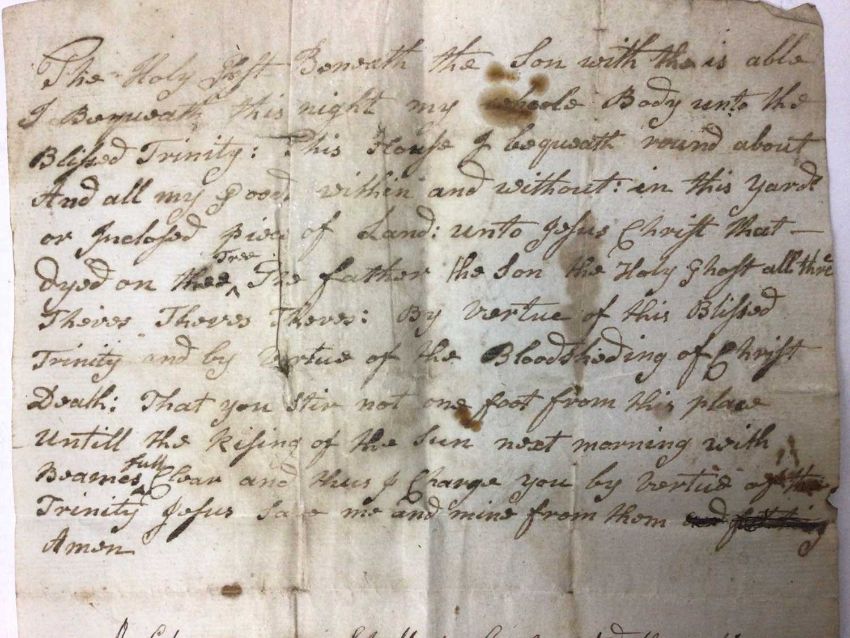 The Holy Ghst Beneath the Son with the is able
I Bequeath this night my whoole Body unto the
Blissed Trinity: This House I bequeath round about
And all my Goods within and without: in this yard
or Inclosed piece of Land: unto Jesus Christ that —
Dyed on thee Tree The father the Son the Holy Ghost all three
Theives Theves Theves: By vertue of this Blissed
Trinity and by vertue of the Bloodsheding of Christ
Death: That you stir not one foot from this place
Untill the Rising of the Sun next morning with
Beames full Clear and thus I Charge you by vertue of the
Trinity Jesus Save me and mine from them and fetching
Amen